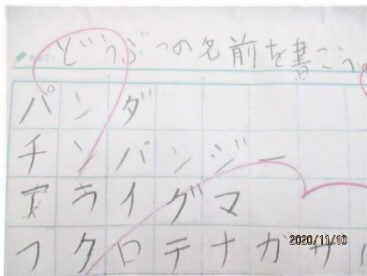 どうぶつの名前を書こう。
パンダ
チンパンジー
アライグマ
フクロテナガザル
2020/11/10